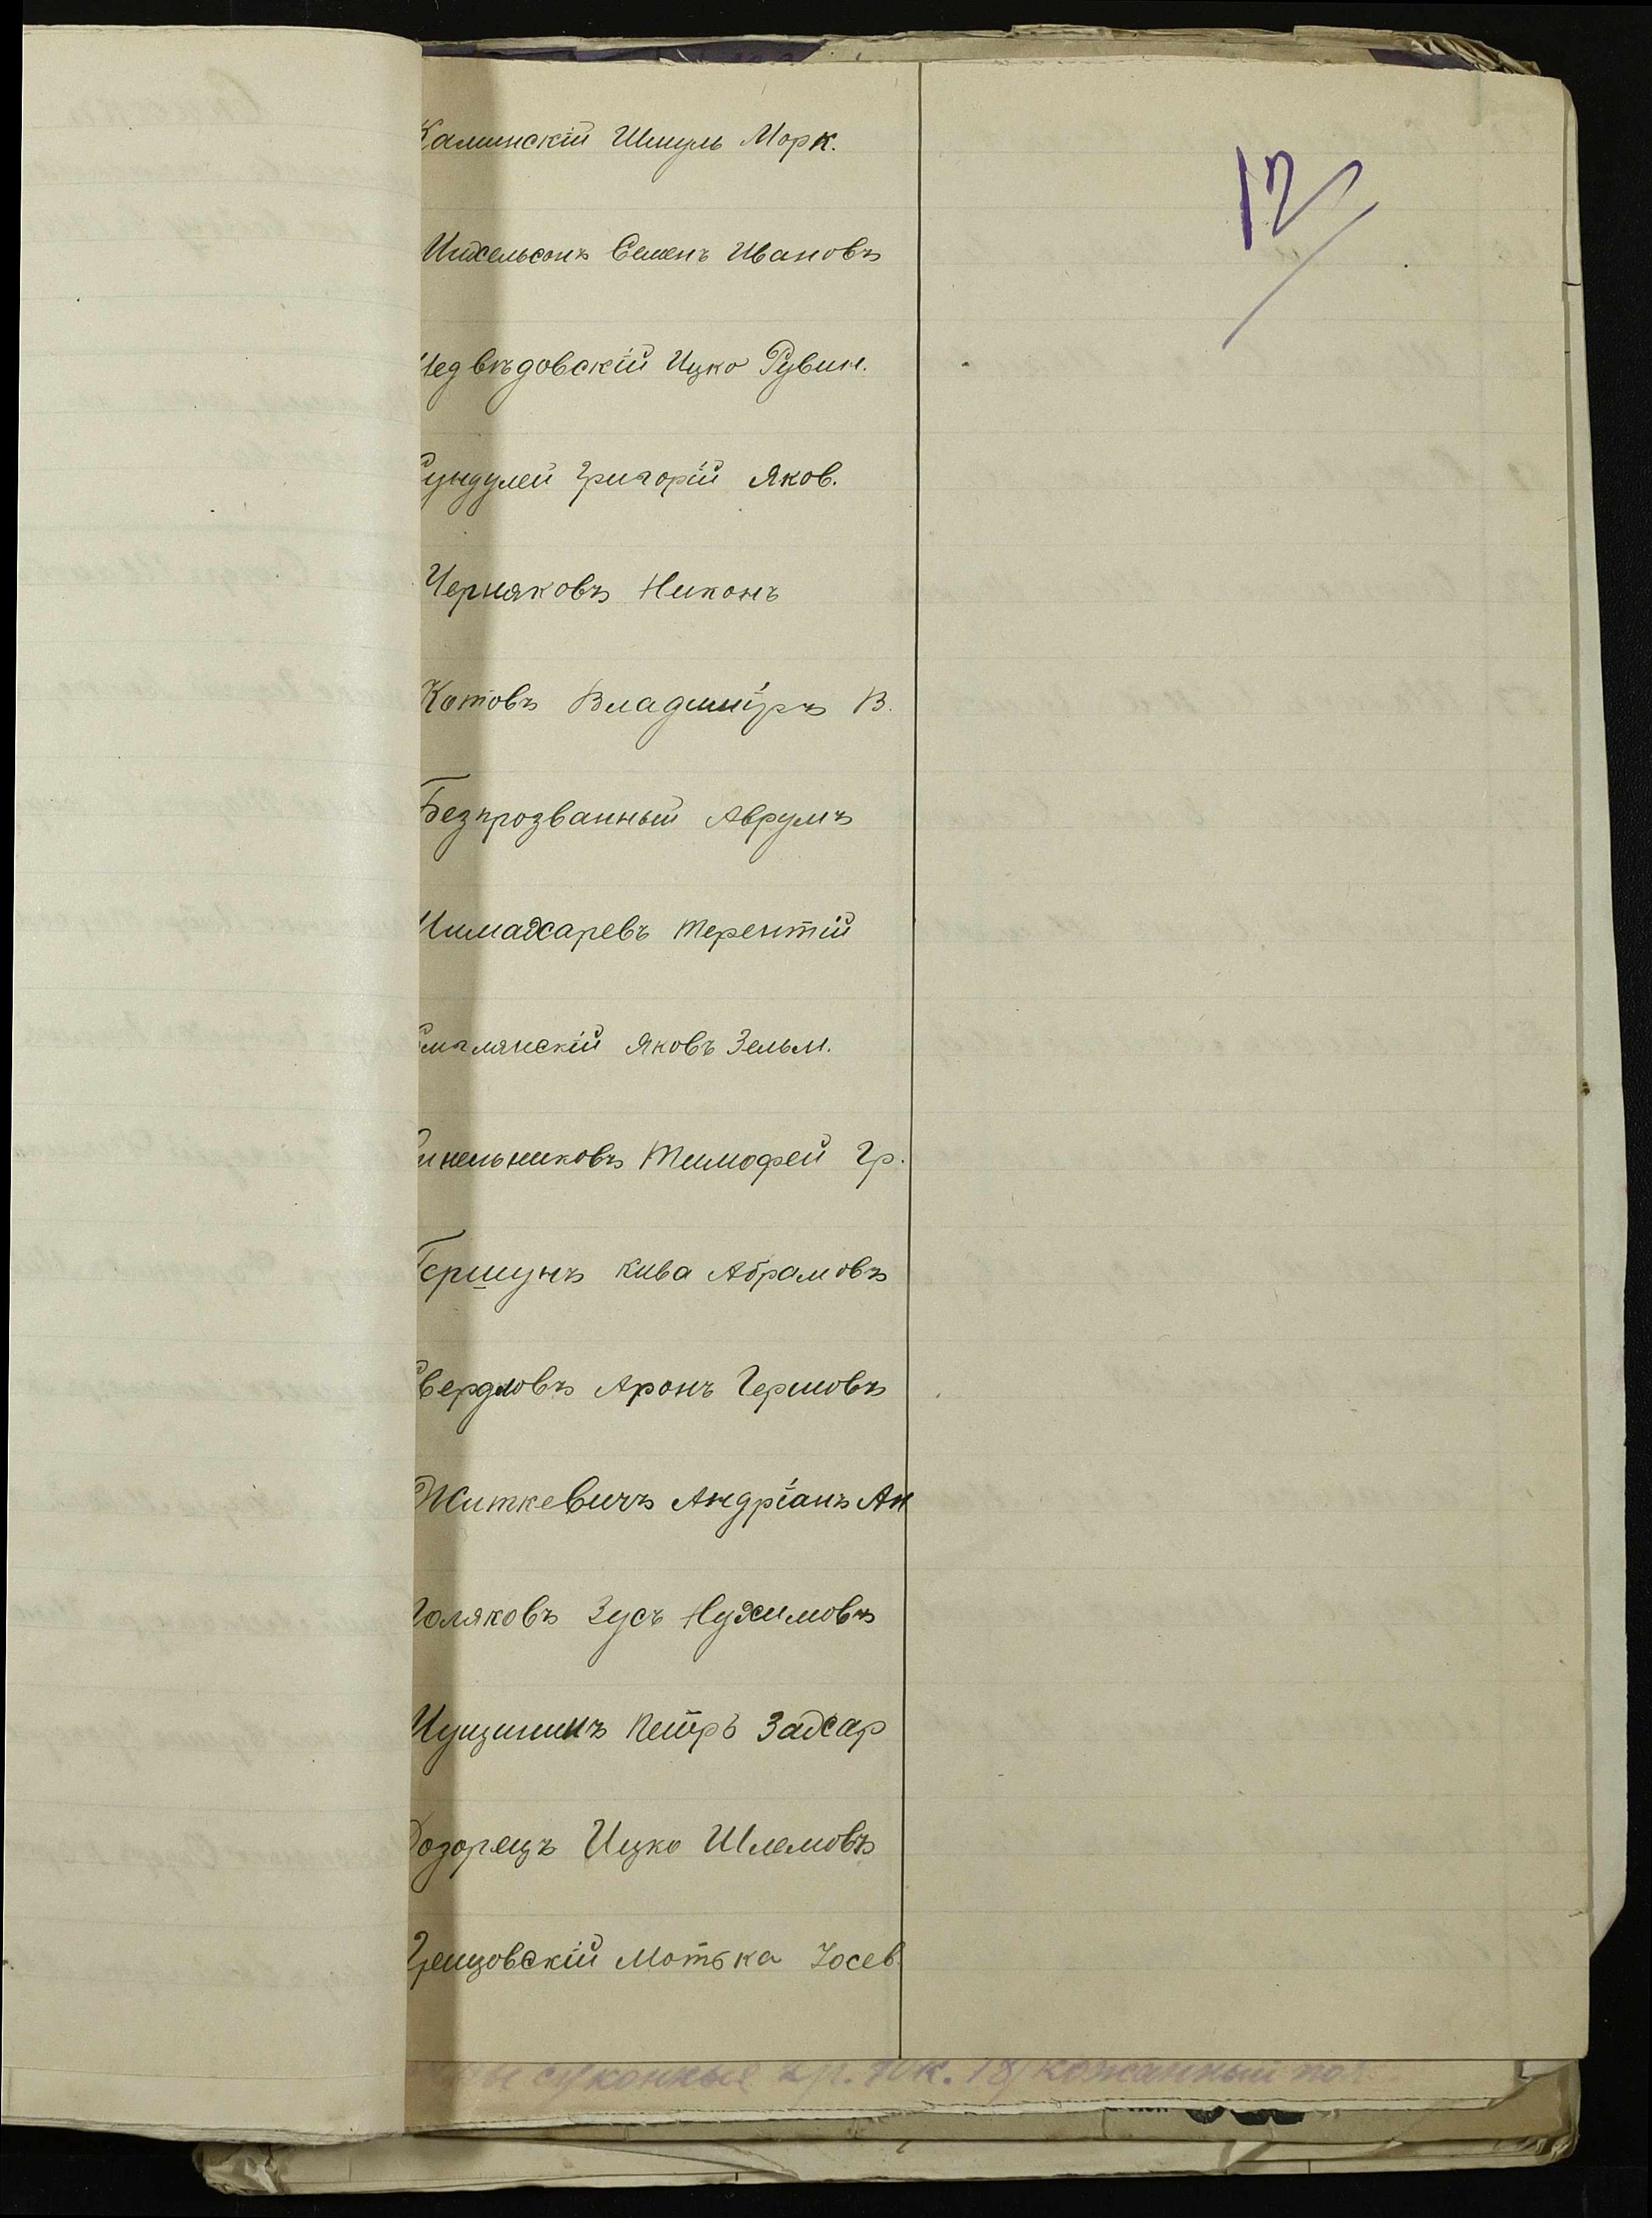 12
Каминскій Шмуль Морк.
Михельсонъ Семенъ Ивановъ
Медвѣдовскій Ицко Рувин.
Сундулей Григорій Яков.
Черняковъ Никонъ
Котовъ Владиміръ В.
Безпрозванный Аврумъ
Терентій
Смѣлянскій Яковъ Зельм.
Синельниковъ Тимофей Гр.
Гершунъ Кива Абрамовъ
Свердловъ Аронъ Гершовъ
Житкевичъ Андріанъ Ан
Поляковъ Зусь Нухимовъ
Пущининъ Петръ Захар
Дозорецъ Ицко Шлемовъ
Грещовскій Мотька Іосев.
суконные кожанный